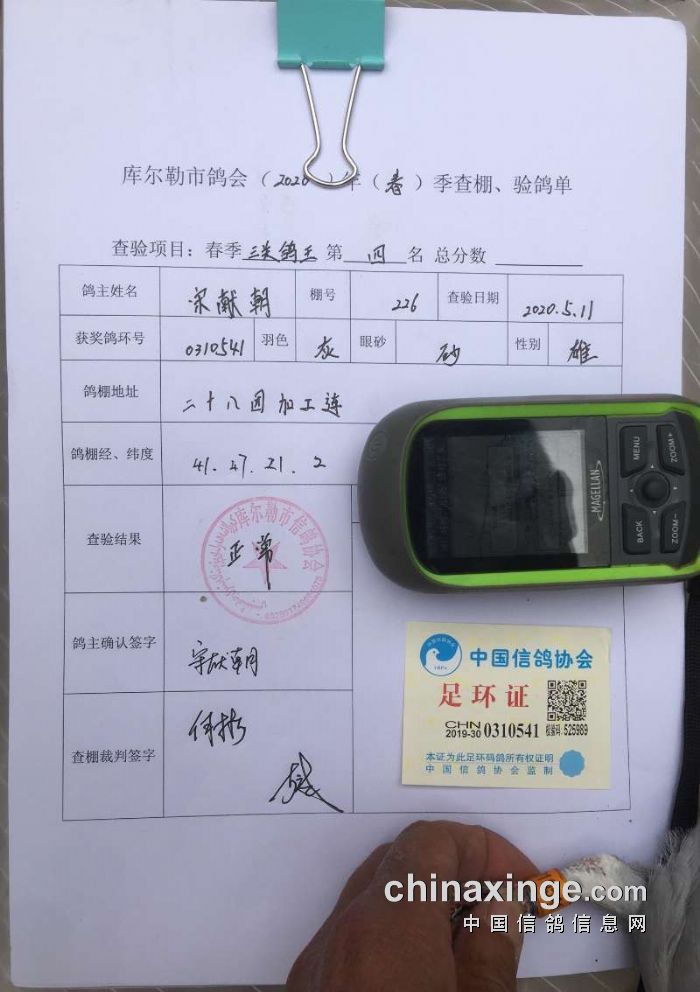 库尔勒市鸽会（2020）年（春）季查棚、验鸽单
查验项目：春季 三关鸽王 第 四 名 总分数
鸽主姓名 宋献朝 棚号 226 查验日期 2020.5.11
获奖鸽环号 0310541 羽色 灰 眼砂 砂 性别 雄
鸽棚地址 二十八团加工连
鸽棚经、纬度 41.47.21.2
查验结果 正常
库尔勒市信鸽协会
鸽主确认签字 宋献朝
查棚裁判签字
MAGELLAN
MENU
ZOOM+
BACK
ZOOM-
中国信鸽协会
足环证
CHN
2019-30 0310541 校验码: 525989
本证为此足环码鸽所有权证明
中国信鸽协会监制
chinaxinge.com
中国信鸽信息网